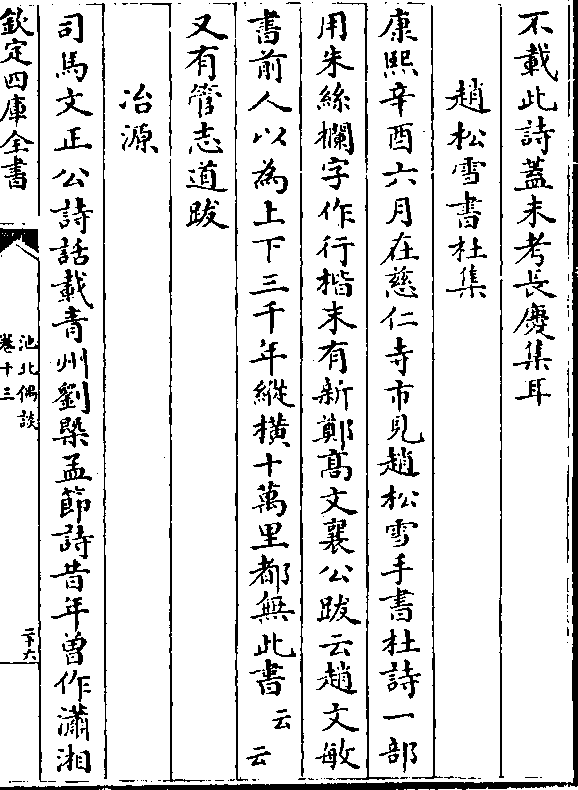 不載此詩蓋未考長慶集耳
趙松雪書杜集
康熙辛酉六月在慈仁寺市見趙松雪手書杜詩一部
用朱絲欄字作行楷末有新鄭髙文襄公跋云趙文敏
書前人以為上下三千年縱横十萬里都無此書云云
又有管志道跋
冶源
司馬文正公詩話載青州劉槩孟節詩昔年曽作瀟湘
欽定四庫全書
池北偶談
卷十三
二十六